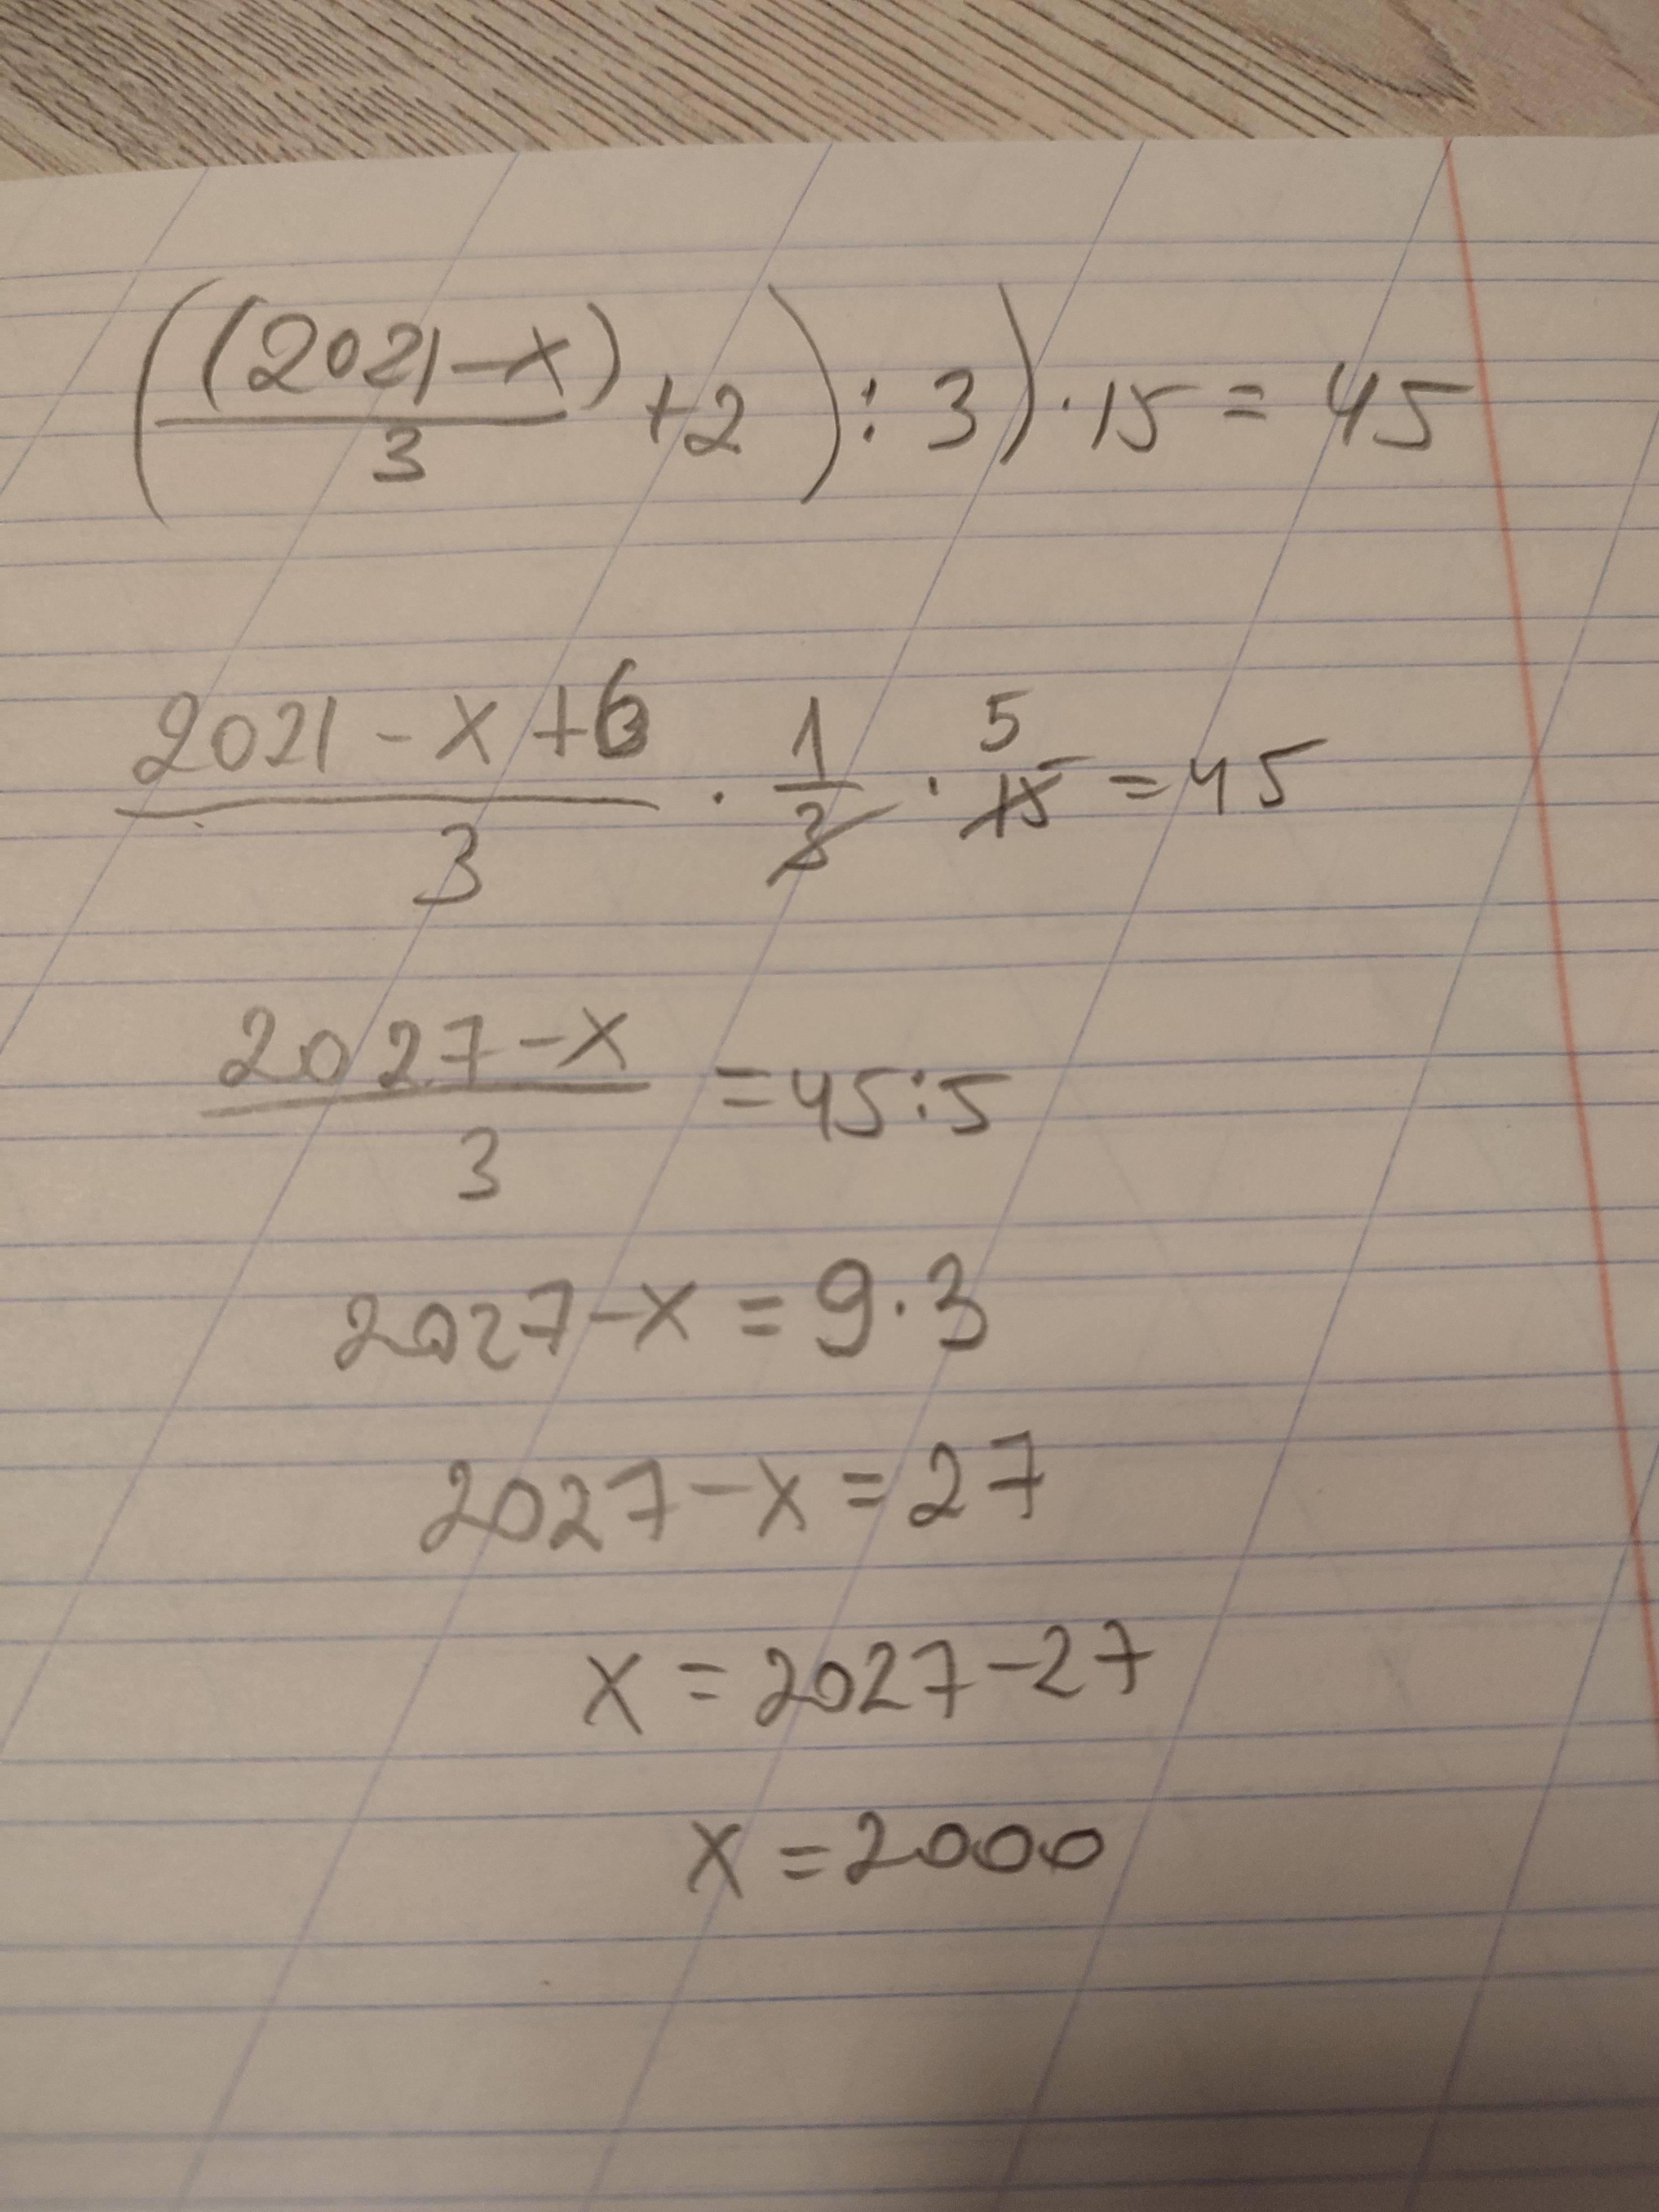 ((2021-x)/3 +2) : 3) · 15 = 45
(2021 - x + 6)/3 · 1/3 · 15 5 = 45
(2027 - x)/3 = 45:5
2027 - x = 9·3
2027 - x = 27
x = 2027 - 27
x = 2000